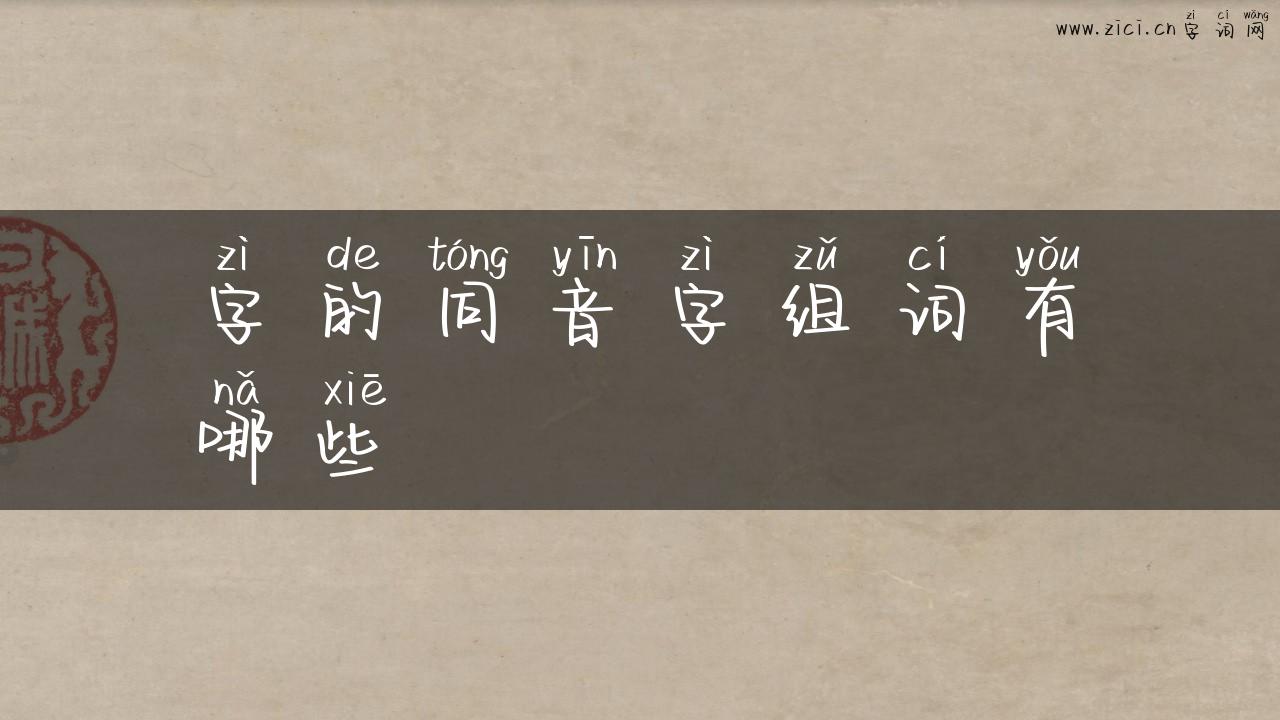 zì cí wǎng
www.zici.cn 字词网
zì de tóng yīn zì zǔ cí yǒu
字的同音字组词有
nǎ xiē
哪些